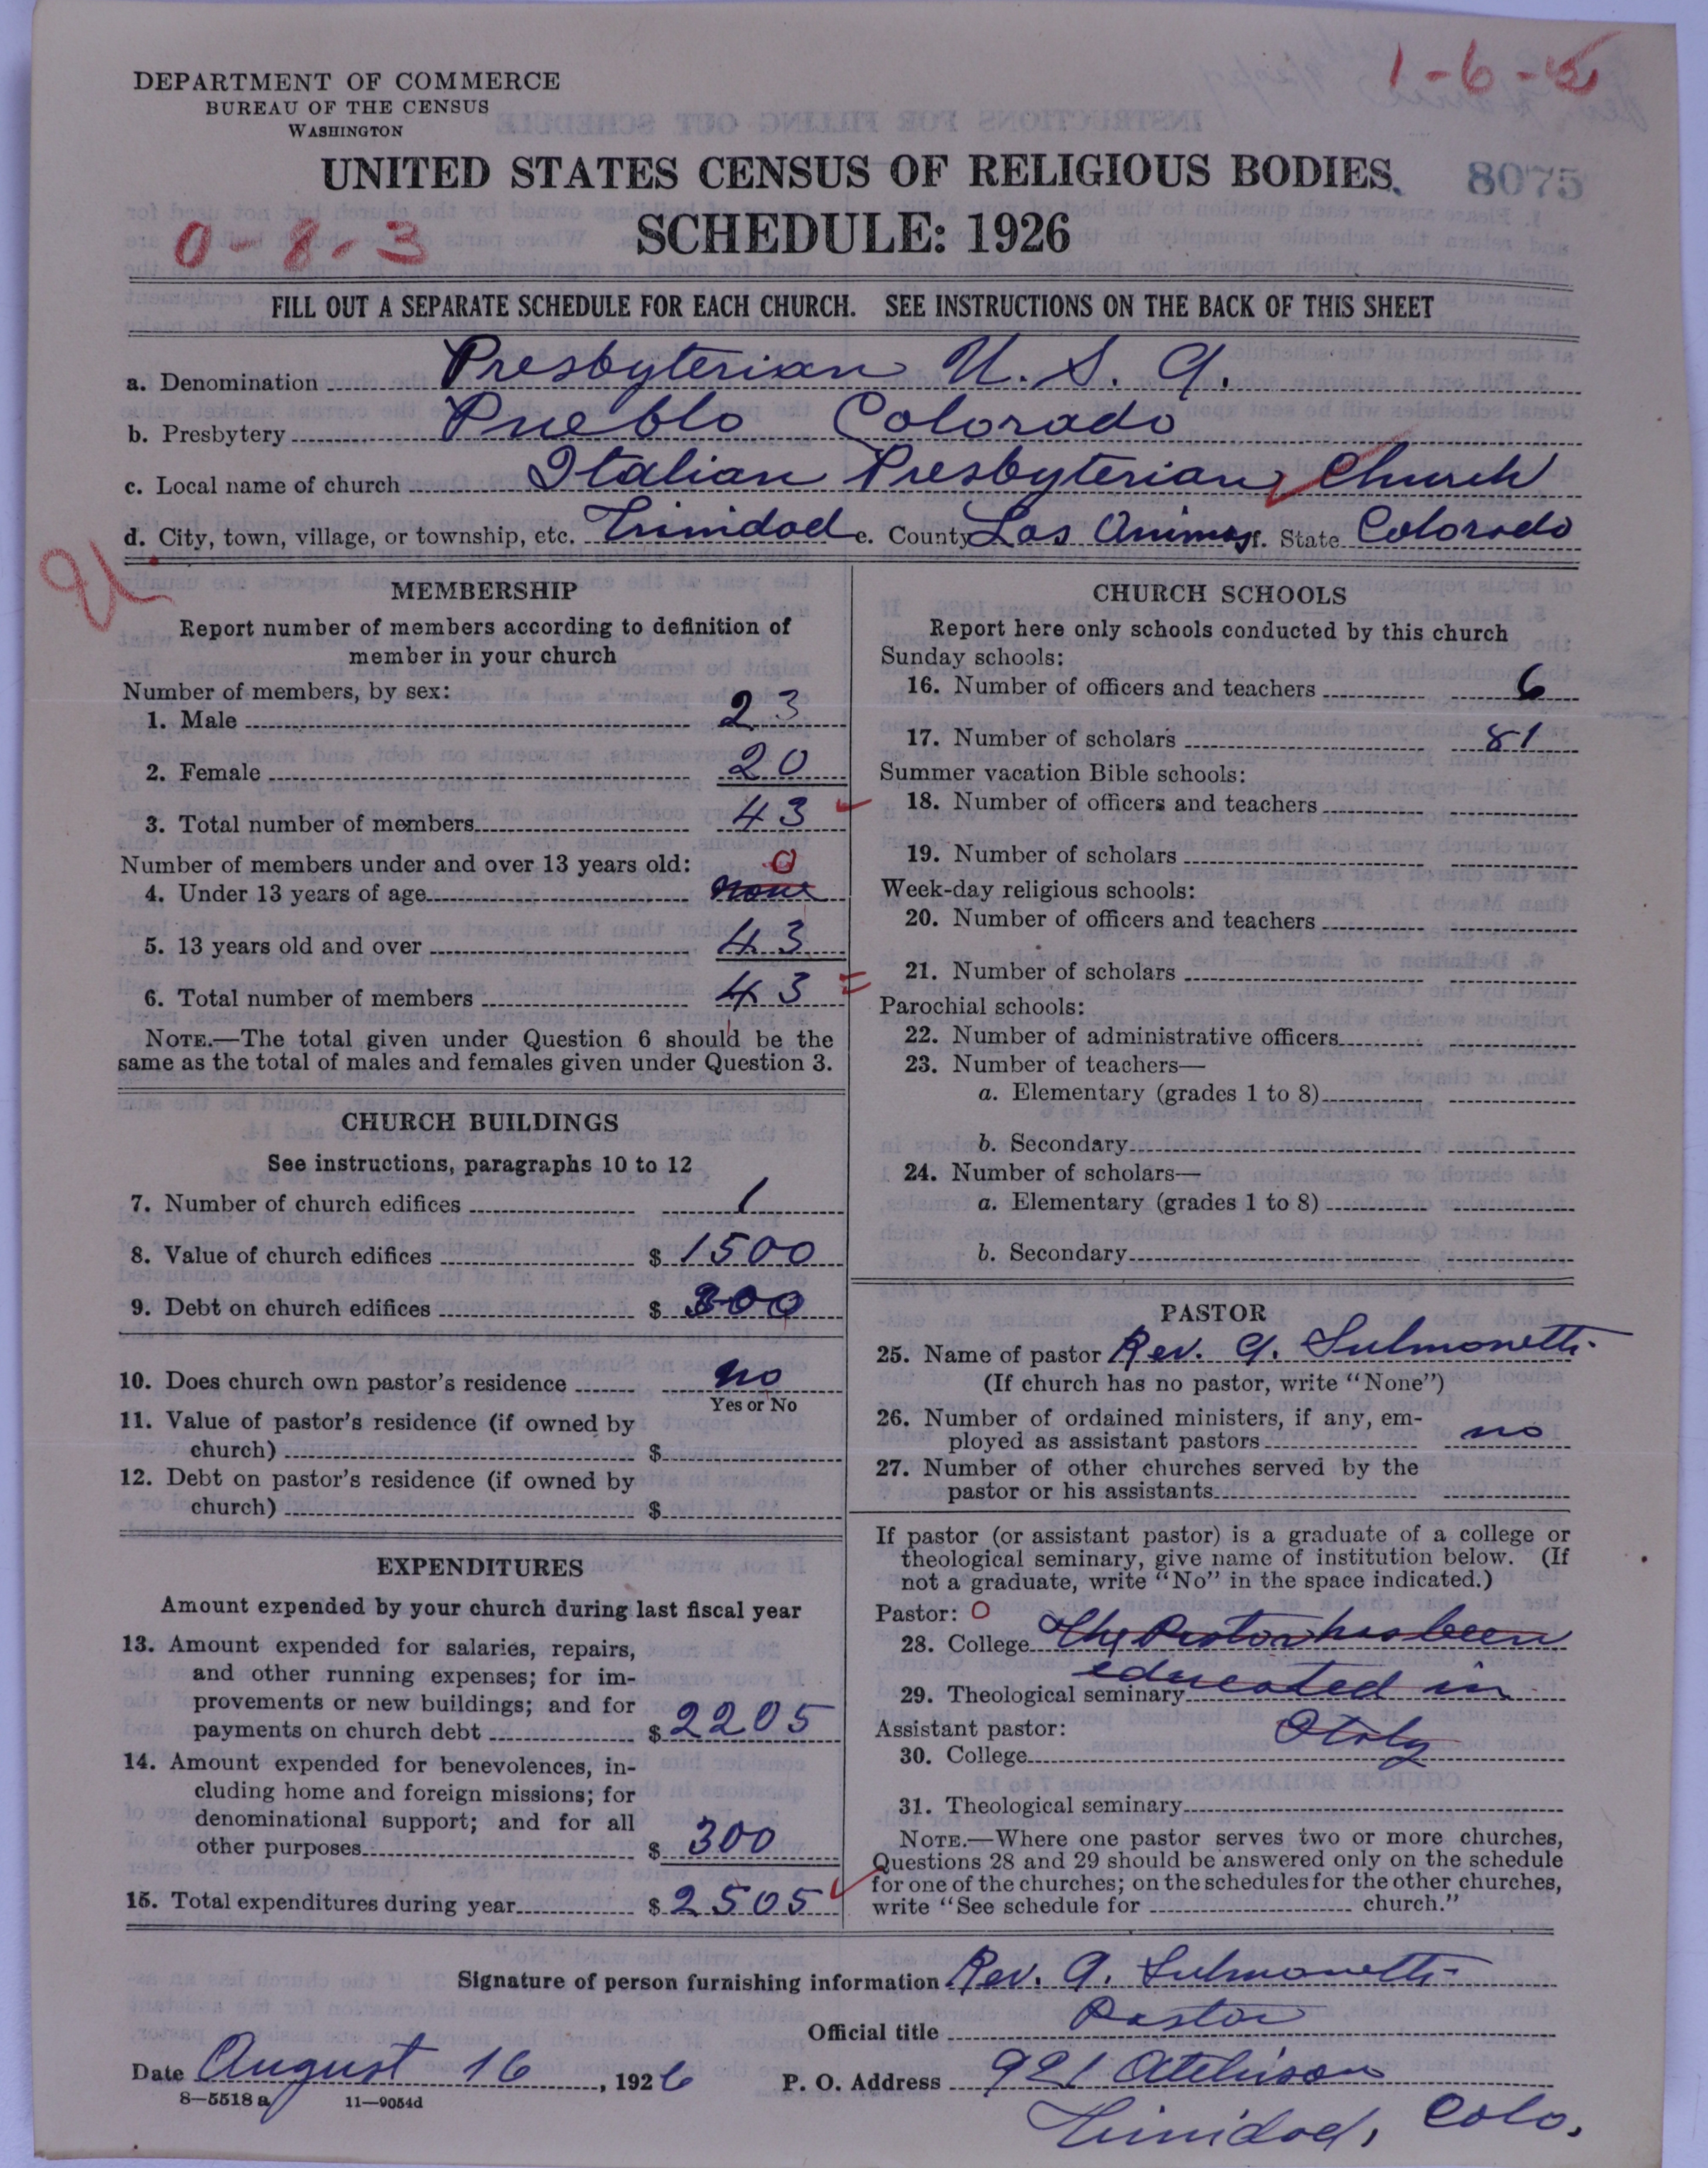 1-6-
DEPARTMENT OF COMMERCE
BUREAU OF THE CENSUS
WASHINGTON
UNITED STATES CENSUS OF RELIGIOUS BODIES.
8075
SCHEDULE: 1926
0-8-3
FILL OUT A SEPARATE SCHEDULE FOR EACH CHURCH. SEE INSTRUCTIONS ON THE BACK OF THIS SHEET
a. Denomination Presbyterian U. S. A.
b. Presbytery Pueblo Colorado
c. Local name of church Italian Presbyterian Church
d. City, town, village, or township, etc. Trinidad e. County Las Animas f. State Colorado
MEMBERSHIP
Report number of members according to definition of
member in your church
Number of members, by sex:
1. Male 23
2. Female 20
3. Total number of members 43
Number of members under and over 13 years old:
0
4. Under 13 years of age none
5. 13 years old and over 43
6. Total number of members 43
NOTE.—The total given under Question 6 should be the
same as the total of males and females given under Question 3.
CHURCH BUILDINGS
See instructions, paragraphs 10 to 12
7. Number of church edifices 1
8. Value of church edifices $ 1500
9. Debt on church edifices $ 300
10. Does church own pastor's residence no
Yes or No
11. Value of pastor's residence (if owned by
church) $
12. Debt on pastor's residence (if owned by
church) $
EXPENDITURES
Amount expended by your church during last fiscal year
13. Amount expended for salaries, repairs,
and other running expenses; for im-
provements or new buildings; and for
payments on church debt $ 2205
14. Amount expended for benevolences, in-
cluding home and foreign missions; for
denominational support; and for all
other purposes $ 300
15. Total expenditures during year $ 2505
CHURCH SCHOOLS
Report here only schools conducted by this church
Sunday schools:
16. Number of officers and teachers 6
17. Number of scholars 81
Summer vacation Bible schools:
18. Number of officers and teachers
19. Number of scholars
Week-day religious schools:
20. Number of officers and teachers
21. Number of scholars
Parochial schools:
22. Number of administrative officers
23. Number of teachers—
a. Elementary (grades 1 to 8)
b. Secondary
24. Number of scholars—
a. Elementary (grades 1 to 8)
b. Secondary
PASTOR
25. Name of pastor Rev. A. Sulmonetti
(If church has no pastor, write "None")
26. Number of ordained ministers, if any, em-
ployed as assistant pastors no
27. Number of other churches served by the
pastor or his assistants
If pastor (or assistant pastor) is a graduate of a college or
theological seminary, give name of institution below. (If
not a graduate, write "No" in the space indicated.)
Pastor: 0
28. College The Pastor has been
29. Theological seminary educated in
Assistant pastor: Italy
30. College
31. Theological seminary
NOTE.—Where one pastor serves two or more churches,
Questions 28 and 29 should be answered only on the schedule
for one of the churches; on the schedules for the other churches,
write "See schedule for church."
Signature of person furnishing information Rev. A. Sulmonetti
Official title Pastor
Date August 16, 1926 P. O. Address 921 Atchison
8—5518 a 11—9054d
Trinidad, Colo.